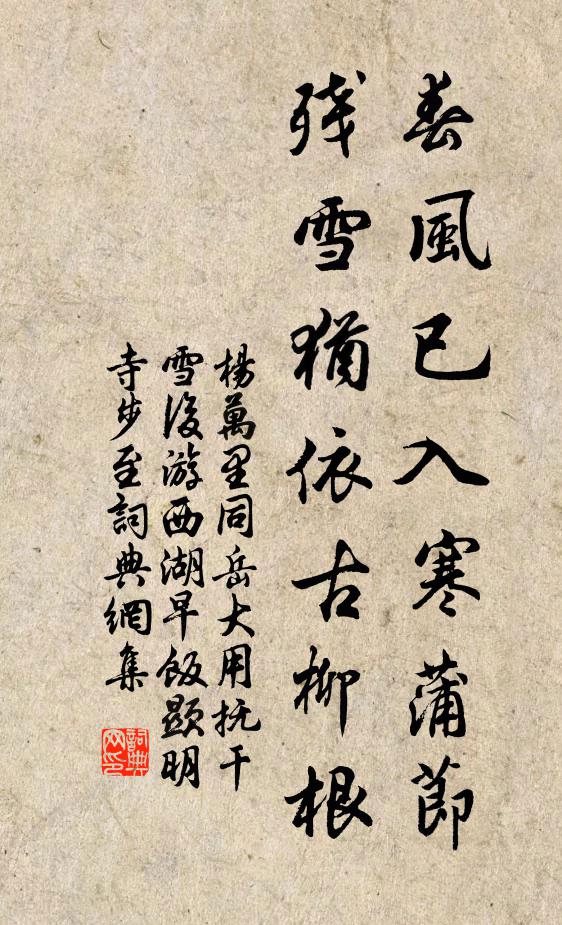 春風已入寒蒲節
残雪猶依古柳根
楊萬里同岳大用抚干
雪後游西湖早飯顕明
寺步至詞典網集
詞典
网印